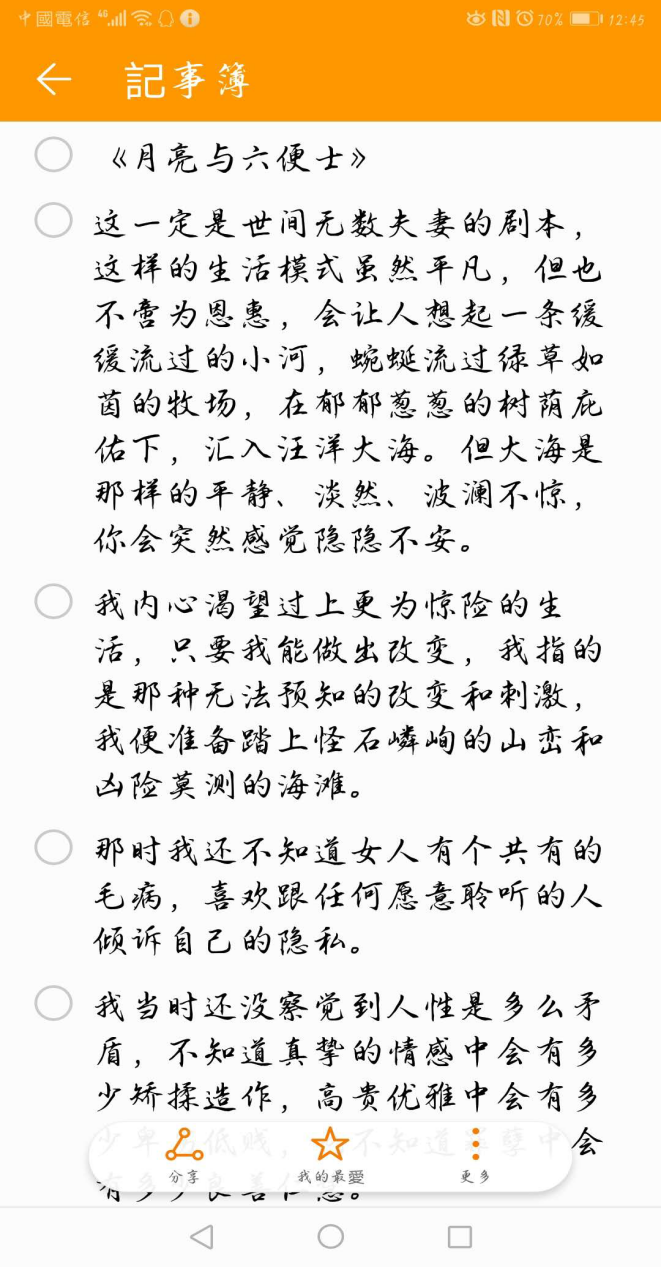 中國電信 4G 70% 12:45
記事簿
《月亮与六便士》
这一定是世间无数夫妻的剧本，
这样的生活模式虽然平凡，但也
不啻为恩惠，会让人想起一条缓
缓流过的小河，蜿蜒流过绿草如
茵的牧场，在郁郁葱葱的树荫庇
佑下，汇入汪洋大海。但大海是
那样的平静、淡然、波澜不惊，
你会突然感觉隐隐不安。
我内心渴望过上更为惊险的生
活，只要我能做出改变，我指的
是那种无法预知的改变和刺激，
我便准备踏上怪石嶙峋的山峦和
凶险莫测的海滩。
那时我还不知道女人有个共有的
毛病，喜欢跟任何愿意聆听的人
倾诉自己的隐私。
我当时还没察觉到人性是多么矛
盾，不知道真挚的情感中会有多
少矫揉造作，高贵优雅中会有多
少卑 低贱， 不知道 孽中会
有多少良善仁慈。
分享 我的最愛 更多